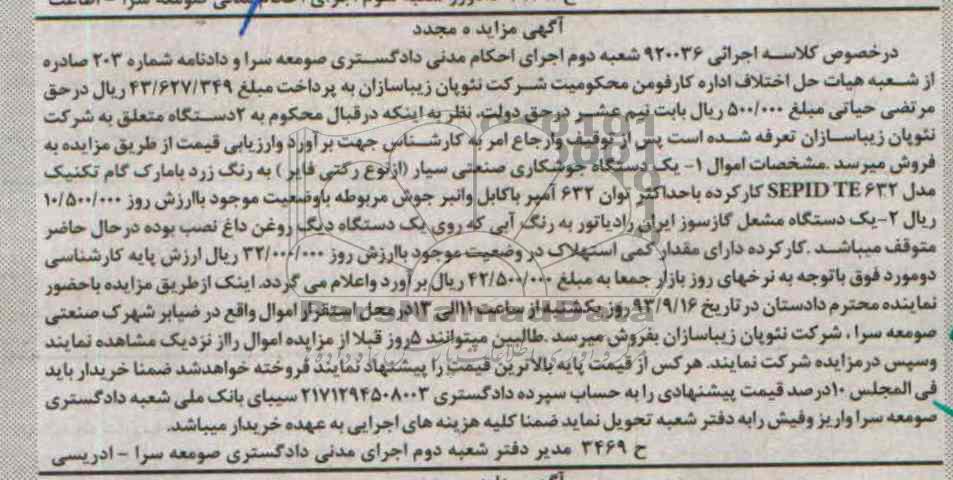 آگهی مزایده مجدد
درخصوص کلاسه اجرائی ۹۲۰۰۳۶ شعبه دوم اجرای احکام مدنی دادگستری صومعه سرا و دادنامه شماره ۲۰۳ صادره
از شعبه هیات حل اختلاف اداره کارفومن محکومیت شرکت نئوپان زیباسازان به پرداخت مبلغ ۴۳/۶۲۷/۳۴۹ ریال درحق
مرتضی حیاتی مبلغ ۵۰۰/۰۰۰ ریال بابت نیم عشر درحق دولت. نظر به اینکه درقبال محکوم به ۲دستگاه متعلق به شرکت
نئوپان زیباسازان تعرفه شده است پس از توقیف وارجاع امر به کارشناس جهت برآورد وارزیابی قیمت از طریق مزایده به
فروش میرسد .مشخصات اموال ۱- یک دستگاه جوشکاری صنعتی سیار (ازنوع رکتی فایر ) به رنگ زرد بامارک گام تکنیک
مدل SEPID TE ۶۳۲ کارکرده باحداکثر توان ۶۳۲ آمپر باکابل وانبر جوش مربوطه باوضعیت موجود باارزش روز ۱۰/۵۰۰/۰۰۰
ریال ۲-یک دستگاه مشعل گازسوز ایران رادیاتور به رنگ آبی که روی یک دستگاه دیگ روغن داغ نصب بوده درحال حاضر
متوقف میباشد .کارکرده دارای مقدار کمی استهلاک در وضعیت موجود باارزش روز ۳۲/۰۰۰/۰۰۰ ریال ارزش پایه کارشناسی
دومورد فوق باتوجه به نرخهای روز بازار جمعا به مبلغ ۴۲/۵۰۰/۰۰۰ ریال برآورد واعلام می گردد. اینک ازطریق مزایده باحضور
نماینده محترم دادستان در تاریخ ۹۳/۹/۱۶ روز یکشنبه از ساعت ۱۱الی ۱۳درمحل استقرار اموال واقع در ضیابر شهرک صنعتی
صومعه سرا ، شرکت نئوپان زیباسازان بفروش میرسد .طالبین میتوانند ۵روز قبلا از مزایده اموال رااز نزدیک مشاهده نمایند
وسپس درمزایده شرکت نمایند. هرکس از قیمت پایه بالاترین قیمت را پیشنهاد نمایند فروخته خواهدشد ضمنا خریدار باید
فی المجلس ۱۰درصد قیمت پیشنهادی را به حساب سپرده دادگستری ۲۱۷۱۲۹۴۵۰۸۰۰۳ سیبای بانک ملی شعبه دادگستری
صومعه سرا واریز وفیش رابه دفتر شعبه تحویل نماید ضمنا کلیه هزینه های اجرایی به عهده خریدار میباشد.
ح ۳۴۶۹ مدیر دفتر شعبه دوم اجرای مدنی دادگستری صومعه سرا - ادریسی